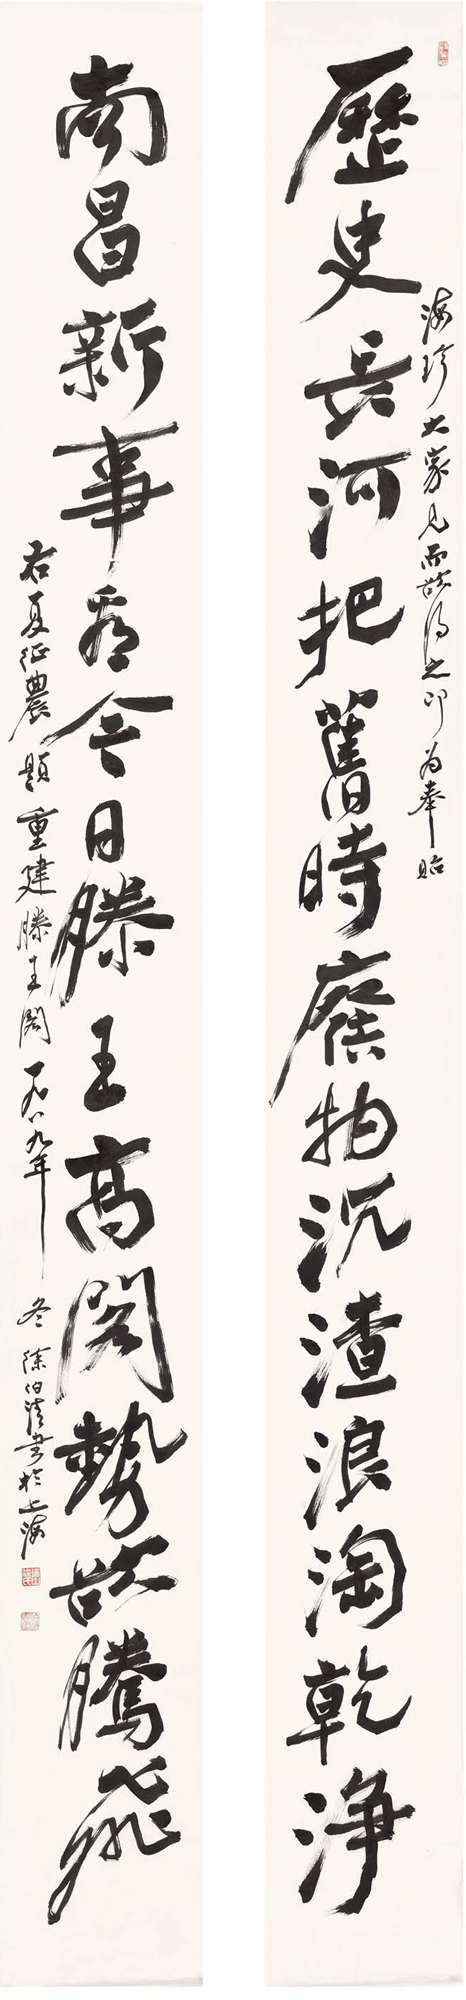 歷史長河把舊時廢物沉渣浪淘乾淨
海珍大家見而欲得之即为奉貽
南昌新事看今日滕王高閣勢欲騰飛
右夏征農題重建滕王閣 一九八九年 冬 徐伯清書於上海